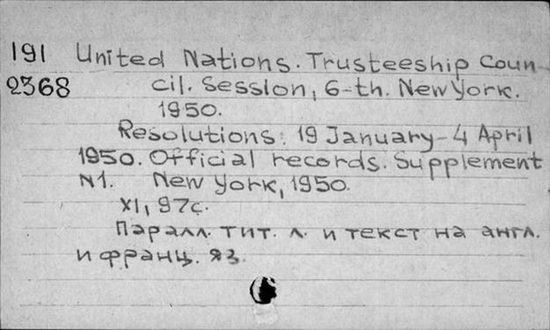 191 United Nations. Trusteeship Coun-
2368 cil. Session, 6-th. New York.
1950.
Resolutions: 19 January - 4 April
1950. Official records. Supplement
N1. New York, 1950.
XI, 97с.
Паралл. тит. л. и текст на англ.
и франц. яз.